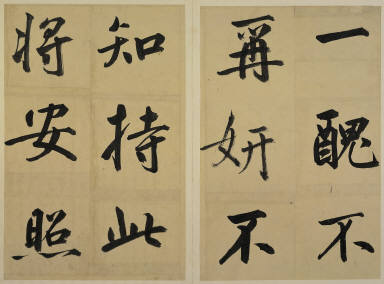 一醜不
再妍不
知持此
將安照